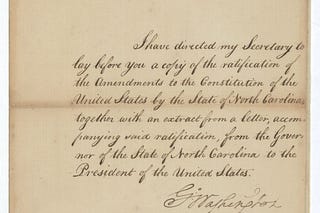 I have directed my Secretary to
lay before you a copy of the ratification of
the Amendments to the Constitution of the
United States by the State of North Carolina
together with an extract from a letter, accom-
panying said ratification, from the Gover-
nor of the State of North Carolina to the
President of the United States.
G:Washington